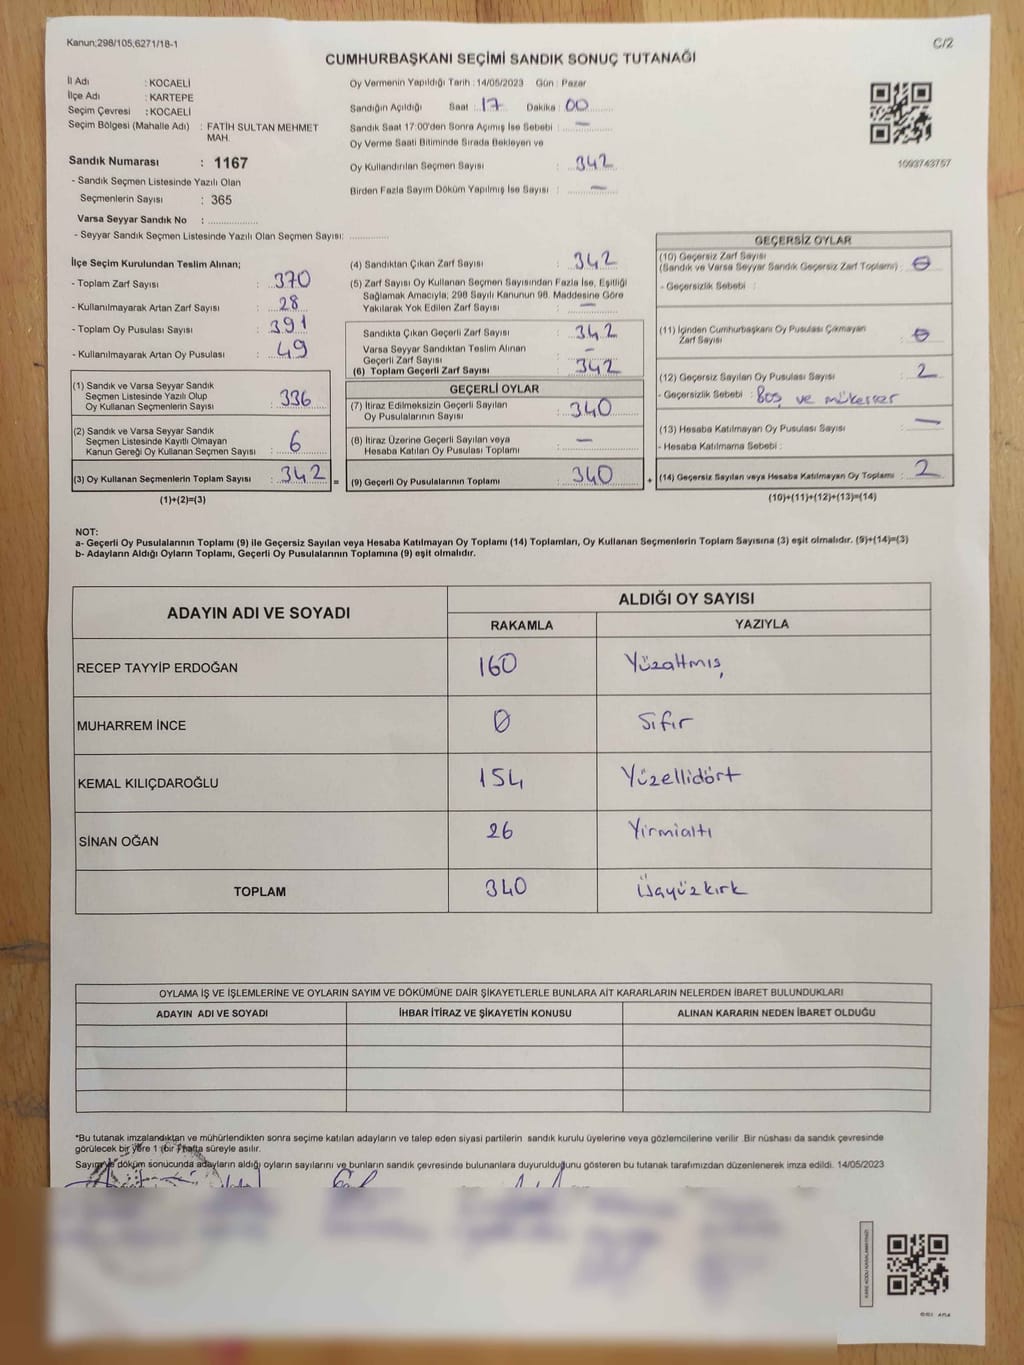 Kanun;298/105,6271/18-1
C/2
CUMHURBAŞKANI SEÇİMİ SANDIK SONUÇ TUTANAĞI
İl Adı : KOCAELİ
İlçe Adı : KARTEPE
Seçim Çevresi : KOCAELİ
Seçim Bölgesi (Mahalle Adı) : FATİH SULTAN MEHMET MAH.
Sandık Numarası : 1167
- Sandık Seçmen Listesinde Yazılı Olan
Seçmenlerin Sayısı : 365
Varsa Seyyar Sandık No :
- Seyyar Sandık Seçmen Listesinde Yazılı Olan Seçmen Sayısı:
Oy Vermenin Yapıldığı Tarih : 14/05/2023 Gün : Pazar
Sandığın Açıldığı Saat : 17 Dakika : 00
Sandık Saat 17:00'den Sonra Açımış İse Sebebi : —
Oy Verme Saati Bitiminde Sırada Bekleyen ve
Oy Kullandırılan Seçmen Sayısı : 342
Birden Fazla Sayım Döküm Yapılmış İse Sayısı : —
1093743757
İlçe Seçim Kurulundan Teslim Alınan;
- Toplam Zarf Sayısı : 370
- Kullanılmayarak Artan Zarf Sayısı : 28
- Toplam Oy Pusulası Sayısı : 391
- Kullanılmayarak Artan Oy Pusulası : 49
(1) Sandık ve Varsa Seyyar Sandık
Seçmen Listesinde Yazılı Olup
Oy Kullanan Seçmenlerin Sayısı : 336
(2) Sandık ve Varsa Seyyar Sandık
Seçmen Listesinde Kayıtlı Olmayan
Kanun Gereği Oy Kullanan Seçmen Sayısı : 6
(3) Oy Kullanan Seçmenlerin Toplam Sayısı : 342 =
(1)+(2)=(3)
(4) Sandıktan Çıkan Zarf Sayısı : 342
(5) Zarf Sayısı Oy Kullanan Seçmen Sayısından Fazla İse, Eşitliği
Sağlamak Amacıyla; 298 Sayılı Kanunun 98. Maddesine Göre
Yakılarak Yok Edilen Zarf Sayısı : —
Sandıkta Çıkan Geçerli Zarf Sayısı : 342
Varsa Seyyar Sandıktan Teslim Alınan
Geçerli Zarf Sayısı : –
(6) Toplam Geçerli Zarf Sayısı : 342
GEÇERLİ OYLAR
(7) İtiraz Edilmeksizin Geçerli Sayılan
Oy Pusulalarının Sayısı : 340
(8) İtiraz Üzerine Geçerli Sayılan veya
Hesaba Katılan Oy Pusulası Toplamı : —
(9) Geçerli Oy Pusulalarının Toplamı : 340 +
GEÇERSİZ OYLAR
(10) Geçersiz Zarf Sayısı
(Sandık ve Varsa Seyyar Sandık Geçersiz Zarf Toplamı) : 0
- Geçersizlik Sebebi :
(11) İçinden Cumhurbaşkanı Oy Pusulası Çıkmayan
Zarf Sayısı : 0
(12) Geçersiz Sayılan Oy Pusulası Sayısı : 2
- Geçersizlik Sebebi : Boş ve mükerrer
(13) Hesaba Katılmayan Oy Pusulası Sayısı : —
- Hesaba Katılmama Sebebi :
(14) Geçersiz Sayılan veya Hesaba Katılmayan Oy Toplamı : 2
(10)+(11)+(12)+(13)=(14)
NOT:
a- Geçerli Oy Pusulalarının Toplamı (9) ile Geçersiz Sayılan veya Hesaba Katılmayan Oy Toplamı (14) Toplamları, Oy Kullanan Seçmenlerin Toplam Sayısına (3) eşit olmalıdır. (9)+(14)=(3)
b- Adayların Aldığı Oyların Toplamı, Geçerli Oy Pusulalarının Toplamına (9) eşit olmalıdır.
ADAYIN ADI VE SOYADI
ALDIĞI OY SAYISI
RAKAMLA YAZIYLA
RECEP TAYYİP ERDOĞAN 160 Yüzaltmış
MUHARREM İNCE 0 Sıfır
KEMAL KILIÇDAROĞLU 154 Yüzellidört
SİNAN OĞAN 26 Yirmialtı
TOPLAM 340 Üçyüzkırk
OYLAMA İŞ VE İŞLEMLERİNE VE OYLARIN SAYIM VE DÖKÜMÜNE DAİR ŞİKAYETLERLE BUNLARA AİT KARARLARIN NELERDEN İBARET BULUNDUKLARI
ADAYIN ADI VE SOYADI İHBAR İTİRAZ VE ŞİKAYETİN KONUSU ALINAN KARARIN NEDEN İBARET OLDUĞU
*Bu tutanak imzalandıktan ve mühürlendikten sonra seçime katılan adayların ve talep eden siyasi partilerin sandık kurulu üyelerine veya gözlemcilerine verilir .Bir nüshası da sandık çevresinde
görülecek bir yere 1 (bir ) hafta süreyle asılır.
Sayım ve döküm sonucunda adayların aldığı oyların sayılarını ve bunların sandık çevresinde bulunanlara duyurulduğunu gösteren bu tutanak tarafımızdan düzenlenerek imza edildi. 14/05/2023